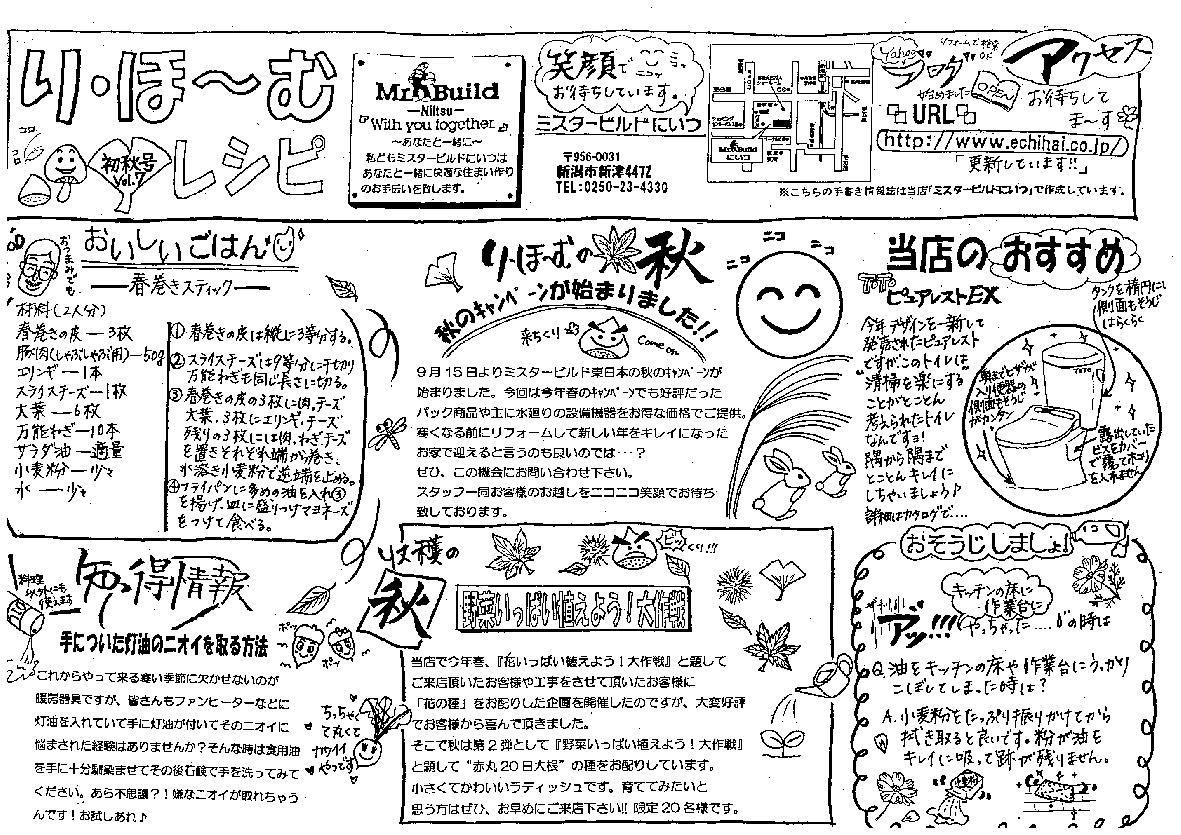 り・ほ～む
レシピ
初秋号
Vol.7
Mr. Build
—Niitsu—
『With you together』
～あなたと一緒に～
私どもミスタービルドにいつは
あなたと一緒に快適な住まい作り
のお手伝いを致します。
笑顔で
お待ちしています。
ミスタービルドにいつ
〒956-0031
新潟市新津4472
TEL:0250-23-4330
Yahoo
ブログ
始めました
OPEN
アクセス
お待ちして
ま〜す
URL
http://www.echihai.co.jp/
「更新しています!!」
※こちらの手書き情報誌は当店「ミスタービルドにいつ」で作成しています。
おつまみでも
おいしいごはん
—春巻きスティック—
材料(2人分)
春巻きの皮—3枚
豚肉(しゃぶしゃぶ用)—50g
エリンギ—1本
スライスチーズ—1枚
大葉—6枚
万能ねぎ—10本
サラダ油—適量
小麦粉—少々
水—少々
①春巻きの皮は縦に3等分する。
②スライスチーズは9等分に千切り
万能ねぎも同じ長さに切る。
③春巻きの皮の3枚に肉、チーズ
大葉、3枚にエリンギ、チーズ
残りの3枚には肉、ねぎ、チーズ
を置きそれぞれ端から巻き、
水溶き小麦粉で逆端を止める。
④フライパンに多めの油を入れ③
を揚げ、皿に盛りつけマヨネーズ
をつけて食べる。
り・ほ～むの秋
秋のキャンペーンが始まりました!!
Come on
9月15日よりミスタービルド東日本の秋のキャンペーンが
始まりました。今回は今年春のキャンペーンでも好評だった
パック商品や主に水廻りの設備機器をお得な価格でご提供。
寒くなる前にリフォームして新しい年をキレイになった
お家で迎えると言うのも良いのでは・・・?
ぜひ、この機会にお問い合わせ下さい。
スタッフ一同お客様のお越しをニコニコ笑顔でお待ち
致しております。
ニコ
ニコ
当店のおすすめ
TOTO
ピュアレストEX
今年デザインを一新して
発売されたピュアレスト
ですが、このトイレは
"清掃を楽にする
ことがとことん
考えられたトイレ
なんですョ!
隅から隅まで
とことんキレイに
しちゃいましょう♪
詳細はカタログで…
タンクを楕円にし
側面もそうじ
はらくらく
奥までヒザが
入り便器の
側面もそうじ
がカンタン
露出していた
ビスをカバー
で覆てホコリ
を入れません
料理
以外にも
使えます
知っ得情報
手についた灯油のニオイを取る方法
これからやって来る寒い季節に欠かせないのが
暖房器具ですが、皆さんもファンヒーターなどに
灯油を入れていて手に灯油が付いてそのニオイに
悩まされた経験はありませんか?そんな時は食用油
を手に十分馴染ませてその後石鹸で手を洗ってみて
ください。あら不思議?!嫌なニオイが取れちゃう
んです!お試しあれ♪
ちっちゃく
て丸くて
カワイイ
ヤツです
収穫の
秋
野菜いっぱい植えよう!大作戦
当店で今年春、『花いっぱい植えよう!大作戦』と題して
ご来店頂いたお客様や工事をさせて頂いたお客様に
「花の種」をお配りした企画を開催したのですが、大変好評
でお客様から喜んで頂きました。
そこで秋は第2弾として『野菜いっぱい植えよう!大作戦』
と題して"赤丸20日大根"の種をお配りしています。
小さくてかわいいラディッシュです。育ててみたいと
思う方はぜひ、お早めにご来店下さい!!限定20名様です。
おそうじしましょ!
キッチンの床に
作業台に
アッ!!!やっちゃた…..の時は
Q.油をキッチンの床や作業台にうっかり
こぼしてしまった時は?
A.小麦粉をたっぷり振りかけてから
拭き取ると良いです。粉が油を
キレイに吸って跡が残りません。